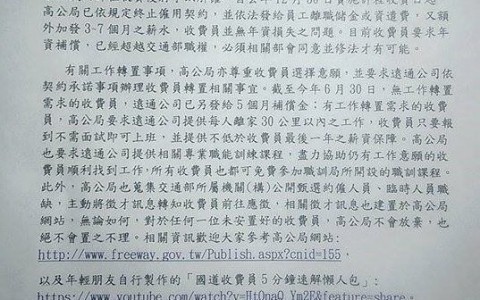 高公局已依規定終止僱用契約，並依法發給員工離職儲金或資遣費，又額
外加發 3~7 個月之薪水，收費員並無年資損失之問題。目前收費員要求年
資補償，已經超越交通部職權，必須相關部會同意並修法才有可能。
有關工作轉置事項，高公局亦尊重收費員選擇意願，並要求遠通公司依
契約承諾事項辦理收費員轉置相關事宜。截至今年 6 月 30 日，無工作轉置
需求的收費員，遠通公司已另發給 5 個月補償金；有工作轉置需求的收費
員，高公局要求遠通公司提供每人離家 30 公里以內之工作，收費員只要報
到不需面試即可上班，並提供不低於收費員最後一年之薪資保障。高公局
也要求遠通公司提供相關專業職能訓練課程，盡力協助仍有工作意願的收費
員順利找到工作，所有收費員也都可免費參加職訓局所開設的職訓課程。
此外，高公局也蒐集交通部所屬機關(構)公開甄選約僱人員、臨時人員職
缺，主動將徵才訊息轉知收費員前往應徵，相關徵才訊息也建置於高公局
網站，無論如何，對於任何一位未安置好的收費員，高公局不會放棄，也
絕不會置之不理。相關資訊歡迎大家參考高公局網站:
http://www.freeway.gov.tw/Publish.aspx?cnid=155，
以及年輕朋友自行製作的「國道收費員 5 分鐘速解懶人包」:
https://www.youtube.com/watch?v=HtOnaQ_Ym2E&feature=share。